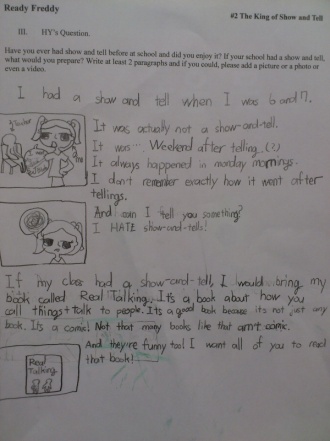 Ready Freddy
#2 The King of Show and Tell
III. HY's Question.
Have you ever had show and tell before at school and did you enjoy it? If your school had a show and tell,
what would you prepare? Write at least 2 paragraphs and if you could, please add a picture or a photo or
even a video.
I had a show and tell when I was 6 and 7.
Teacher
me
It was actually not a show-and-tell.
It was... Weekend after telling..(?)
It always happened in monday mornings.
I don't remember exactly how it went after
tellings.
And can I tell you something?
I HATE show-and-tells!
If my class had a show-and-tell, I would bring my
book called Real Talking. Its a book about how you
call things + talk to people. Its a good book because its not just any
book. Its a comic! Not that many books like that arn't comic.
And they're funny too! I want all of you to read
that book!
Real
Talking